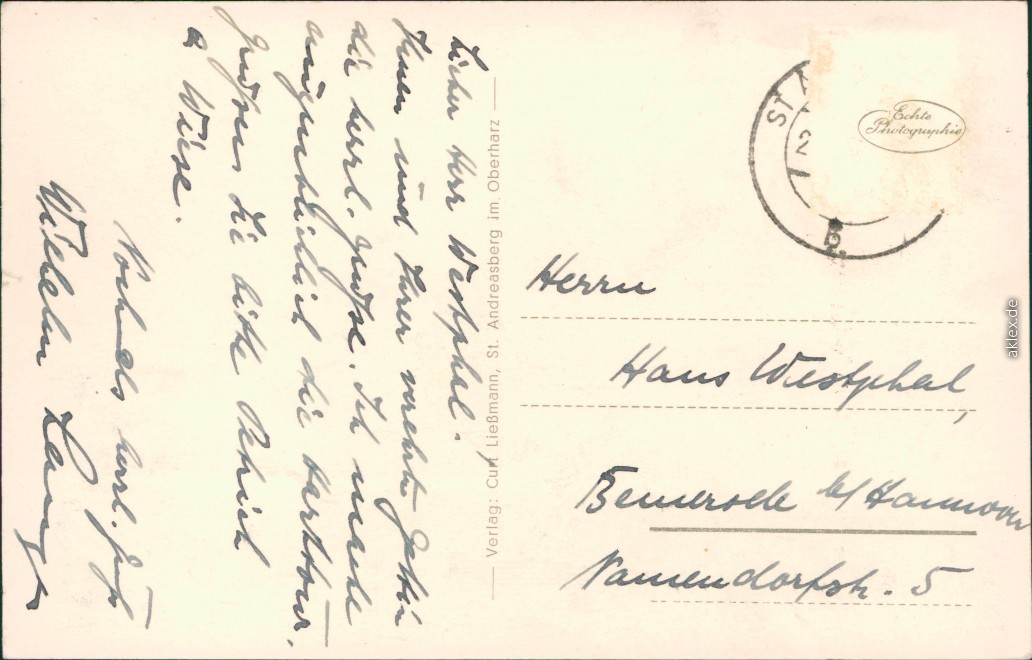 Lieber Herr Westphal.
Ihnen und Ihrer verehrten Gattin
die herzl. Grüße. Ich mache
augenblicklich die Harztour.
Grüßen Sie bitte
a Wiese.
Nochmals herzl. Gruß
Wilhelm
Verlag: Curt Ließmann, St. Andreasberg im Oberharz
ST
2
b
Echte
Photographie
Herrn
Hans Westphal,
Bemerode b/ Hannover
Namendorfstr. 5
aklex.de